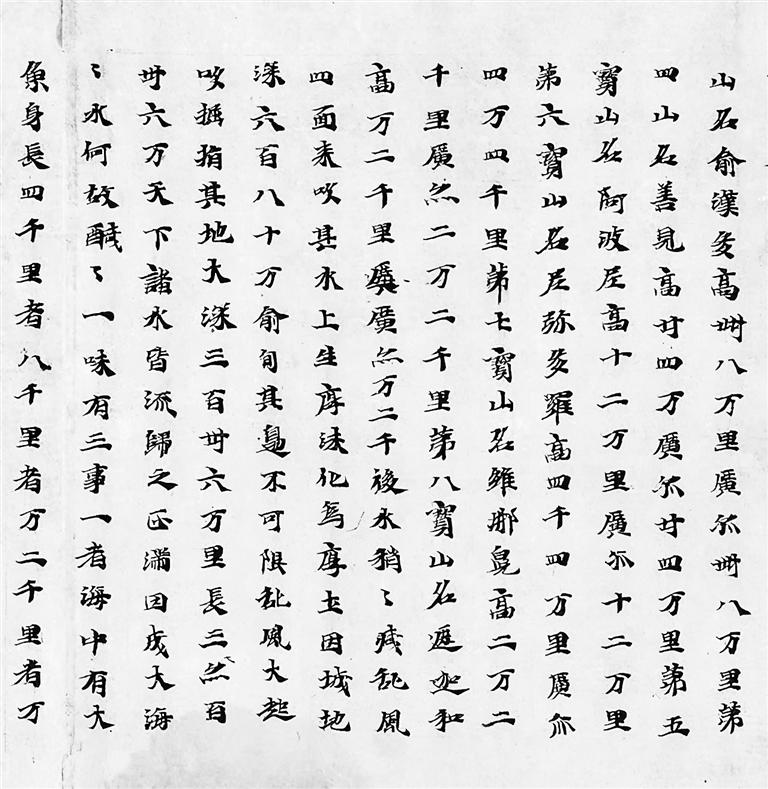 山名俞漢多高卌八万里廣亦卌八万里第
四山名善見高廿四万廣亦廿四万里第五
寶山名阿波尼高十二万里廣亦十二万里
第六寶山名尼弥多羅高四千四万里廣亦
四万四千里第七寶山名維那兜高二万二
千里廣亦二万二千里第八寶山名遮迦和
高万二千里廣廣亦万二千後水稍〻殘乱風
四面来吹其水上生摩沫化為摩土因城地
深六百八十万俞旬其邊不可限乱風大起
吹掘指其地大深三百卅六万里長三亦百
卅六万天下諸水皆流歸之正滿因成大海
〻水何故醎〻一味有三事一者海中有大
魚身長四千里者八千里者万二千里者万